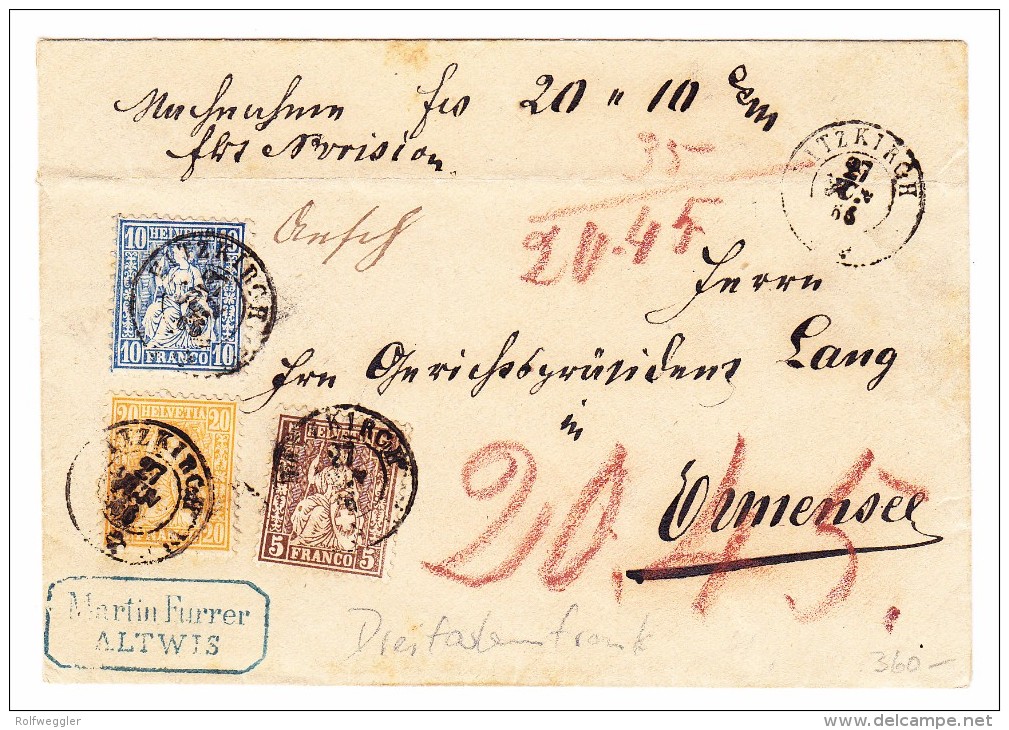 Nachnahme frs 20 " 10
fkt Provision
35
20.45
ITZKIRCH
27
66
Aesch
Herrn
Hrn Gerichtspräsident Lang
in
Ermensee
20.45.
10 HELVETIA 10
10 FRANCO 10
HITZKIRCH
20 HELVETIA 20
20
ITZKIRCH
27
KIRCH
27
5 FRANCO 5
Martin Furrer
ALTWIS
Dreifarbenfrank
360-
Rolfweggler
www.delcampe.net